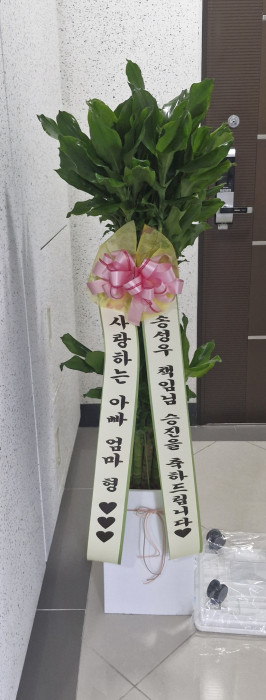 송성우 책임님 승진을 축하드립니다♥
사랑하는 아빠 엄마 형 ♥♥♥